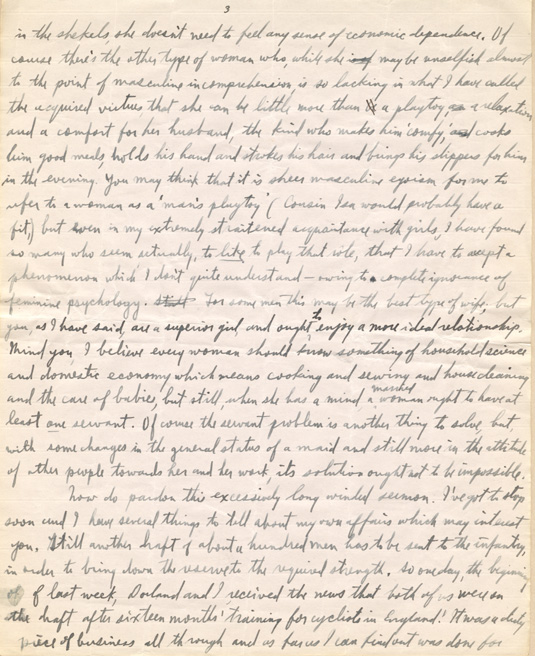 3
in the shekels she doesn't need to feel any sense of economic dependence. Of
course there's the other type of woman who, while she may be unselfish almost
to the point of masculine incomprehension is so lacking in what I have called
the acquired virtues that she can be little more than a playtoy, a relaxation
and a comfort for her husband, the kind who makes him 'comfy', cooks
him good meals, holds his hand and strokes his hair and brings his slippers for him
in the evening. You may think that it is sheer masculine egoism for me to
refer to a woman as a 'man's playtoy' (Cousin Isa would probably have a
fit,) but even in my extremely straitened acquaintance with girls, I have found
so many who seem actually, to like to play that role, that I have to accept a
phenomenon which I don't quite understand – owing to complete ignorance of
feminine psychology. For some men this may be the best type of wife, but
you, as I have said, are a superior girl and ought to enjoy a more ideal relationship.
Mind you, I believe every woman should know something of household science
and domestic economy, which means cooking and sewing and housecleaning
and the care of babies, but still, when she has a mind, a married woman ought to have at
least one servant. Of course the servant problem is another thing to solve, but
with some changes in the general status of a maid and still more in the attitude
of other people towards her and her work, its solution ought not to be impossible.
Now do pardon this excessively long winded sermon. I've got to stop
soon and I have several things to tell about my own affairs which may interest
you. Still another draft of about a hundred men has to be sent to the infantry,
in order to bring down the reserve to the required strength. So one day, the beginning
of last week, Dorland and I received the news that both of us were on
the draft after sixteen months' training for cyclists in England! It was a dirty
piece of business all through and as far as I can find out was done for